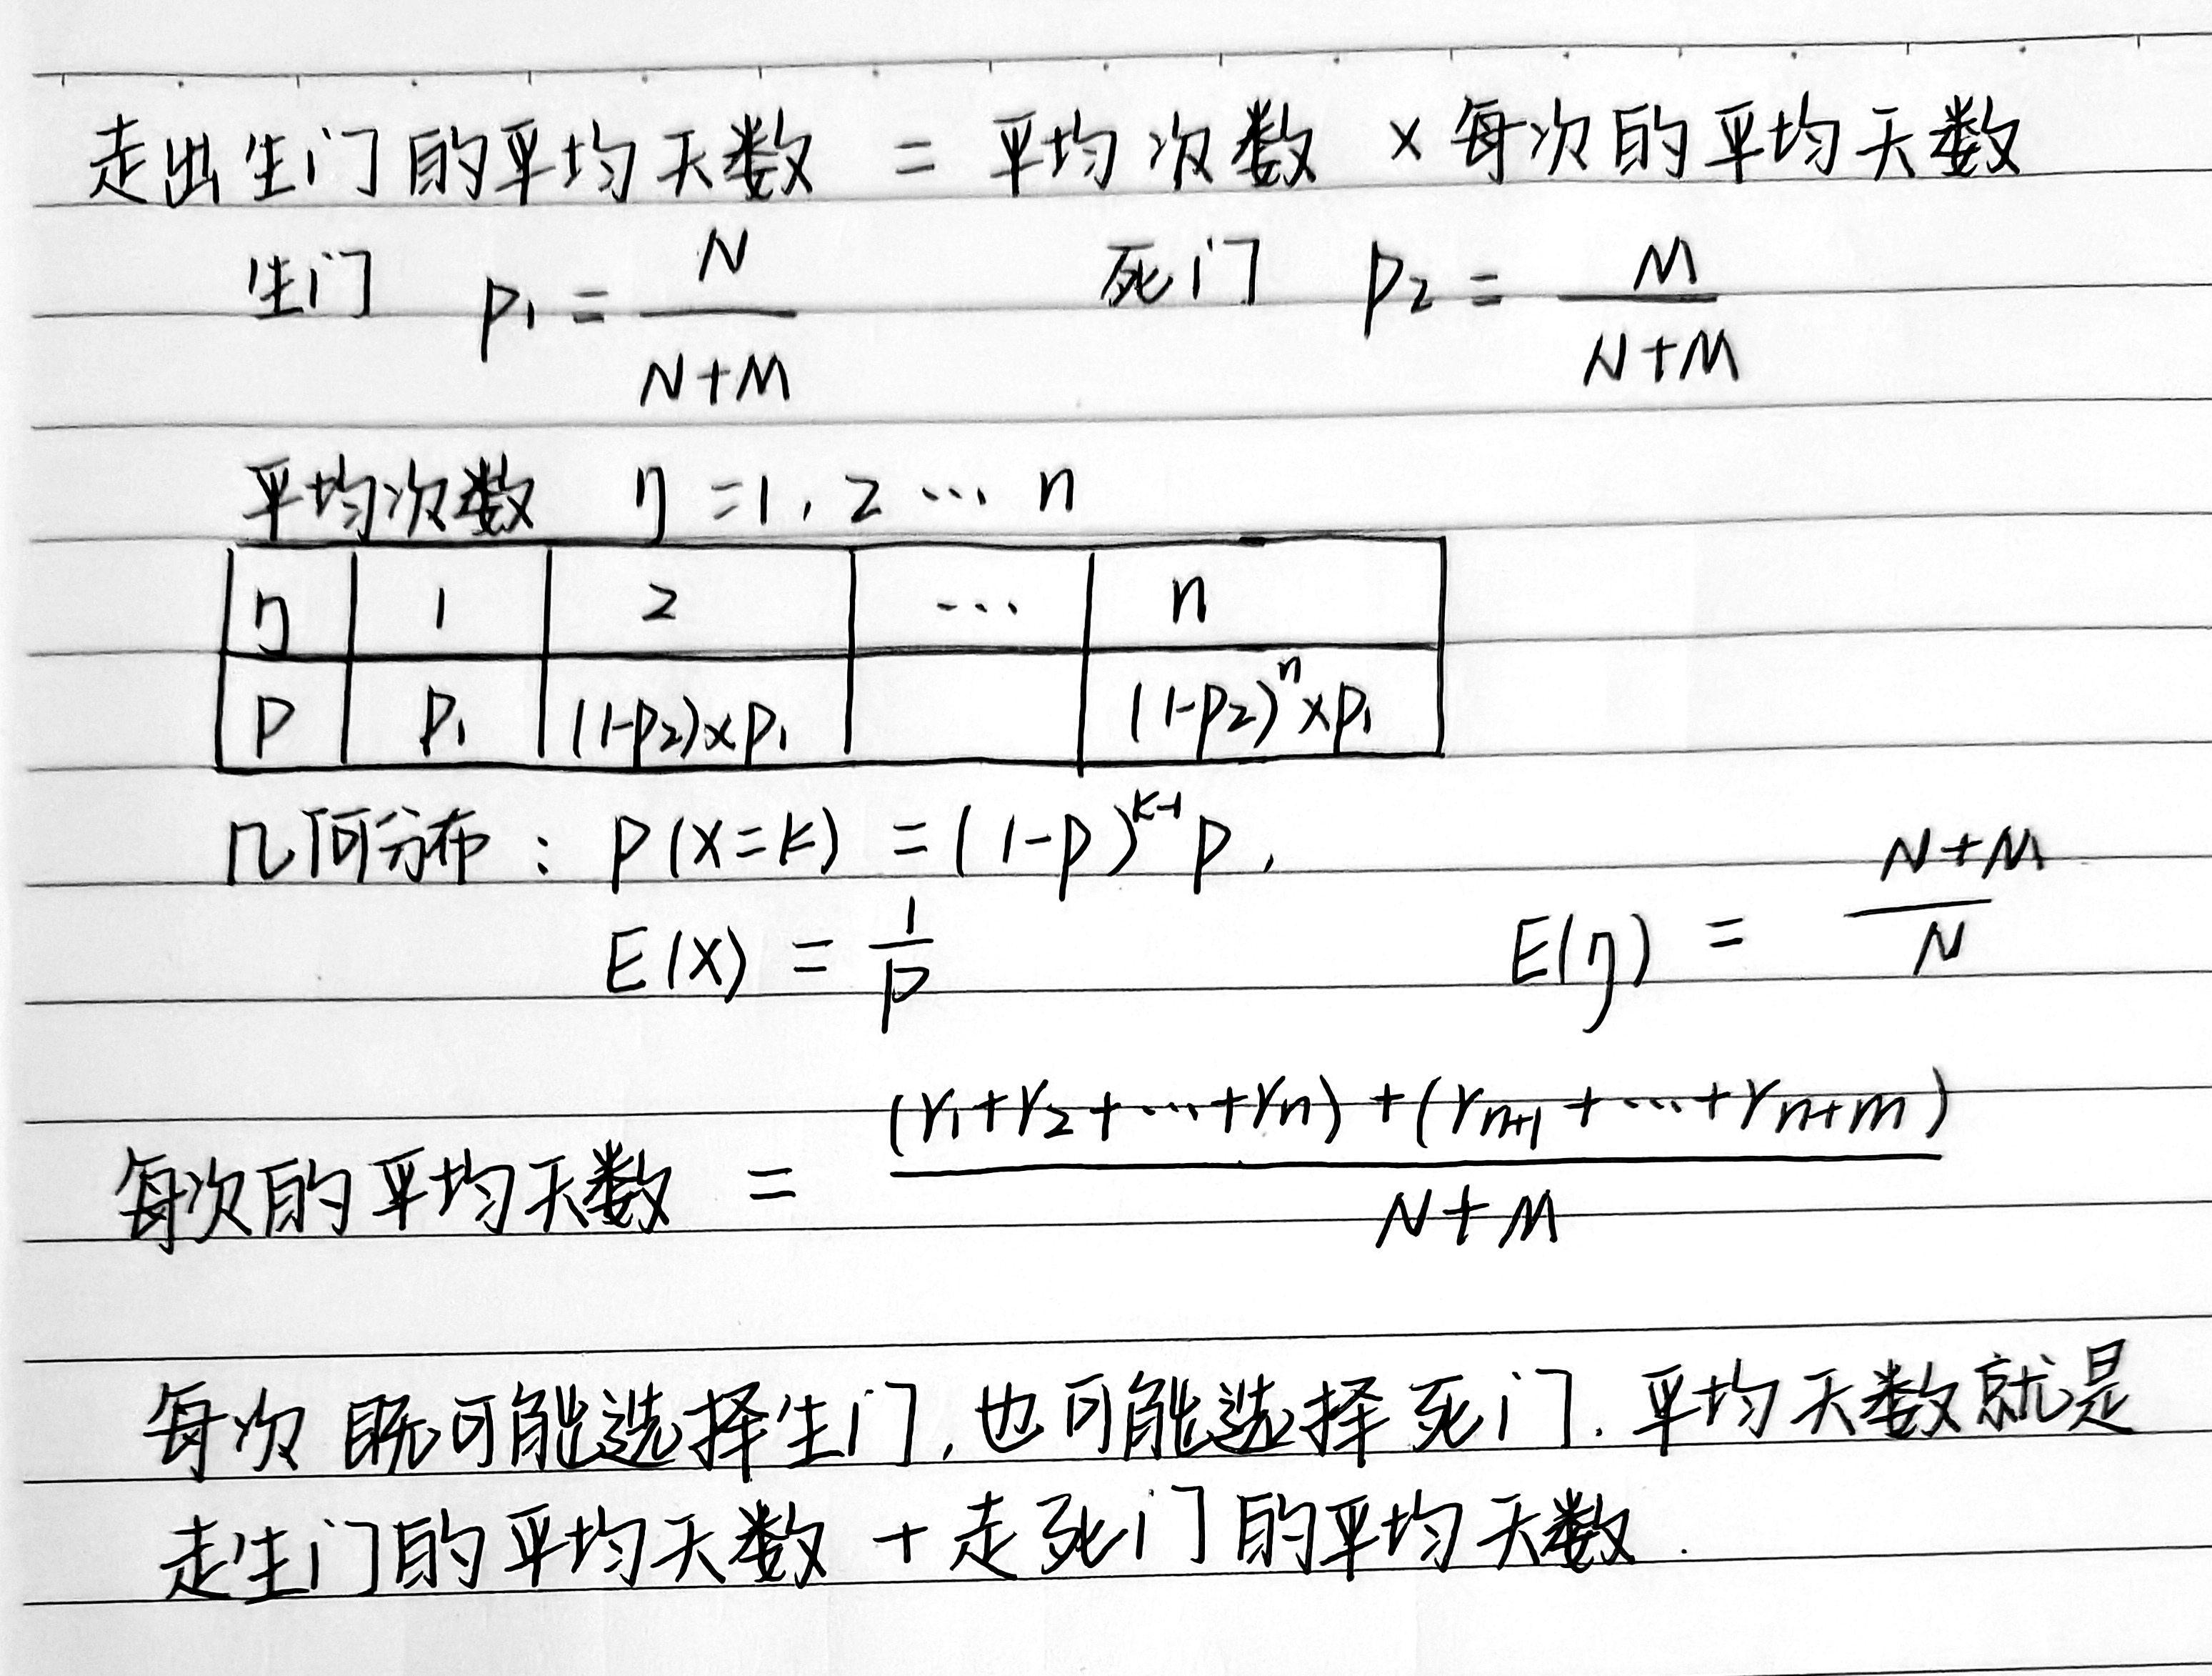 走出生门的平均天数 = 平均次数 × 每次的平均天数
生门 P₁ = N/(N+M) 死门 P₂ = M/(N+M)
平均次数 η = 1, 2 … n
η 1 2 … n
P P₁ (1-P₂)×P₁ (1-P₂)ⁿ×P₁
几何分布: P(X=K) = (1-P)ᴷ⁻¹P,
E(X) = 1/P E(η) = (N+M)/N
每次的平均天数 = ((r₁+r₂+…+rₙ)+(rₙ₊₁+…+rₙ₊ₘ))/(N+M)
每次既可能选择生门,也可能选择死门.平均天数就是
走生门的平均天数 + 走死门的平均天数.